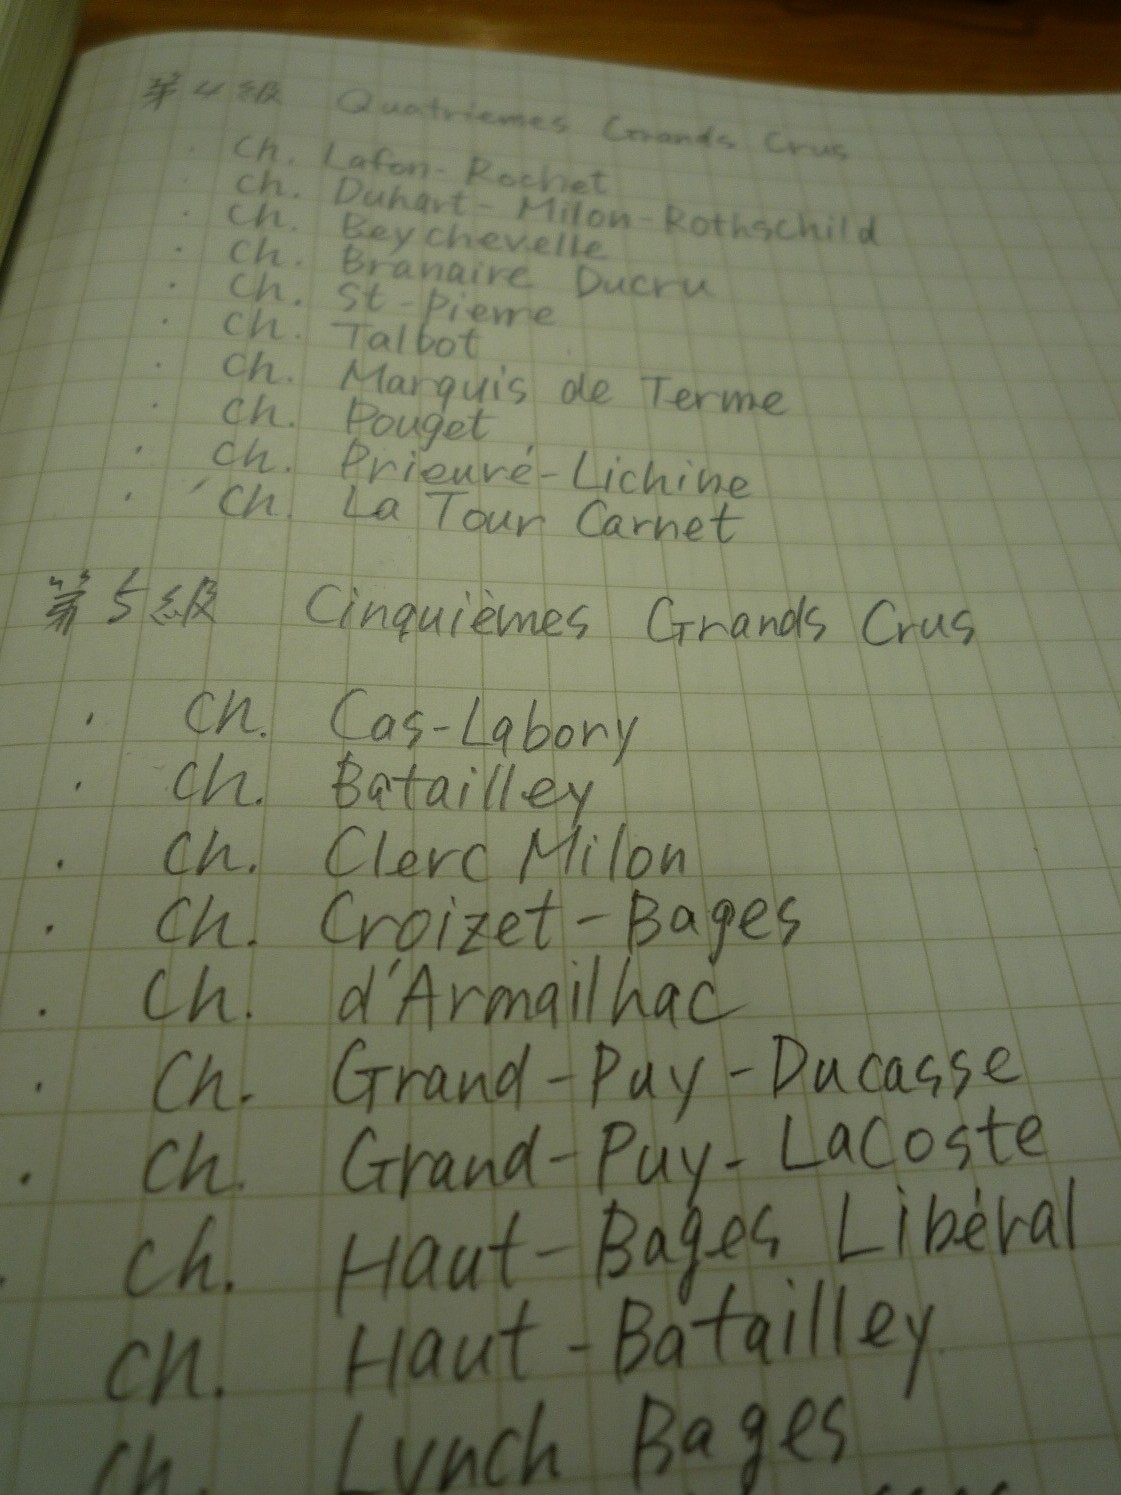 第4級 Quatriemes Grands Crus
・ Ch. Lafon-Rochet
・ Ch. Duhart-Milon-Rothschild
・ Ch. Beychevelle
・ Ch. Branaire Ducru
・ Ch. St-Pierre
・ Ch. Talbot
・ Ch. Marquis de Terme
・ Ch. Pouget
・ Ch. Prieuré-Lichine
・ Ch. La Tour Carnet
第5級 Cinquièmes Grands Crus
・ Ch. Cos-Labory
・ Ch. Batailley
・ Ch. Clerc Milon
・ Ch. Croizet-Bages
・ Ch. d'Armailhac
・ Ch. Grand-Puy-Ducasse
・ Ch. Grand-Puy-LaCoste
・ Ch. Haut-Bages Libéral
Ch. Haut-Batailley
Ch. Lynch Bages